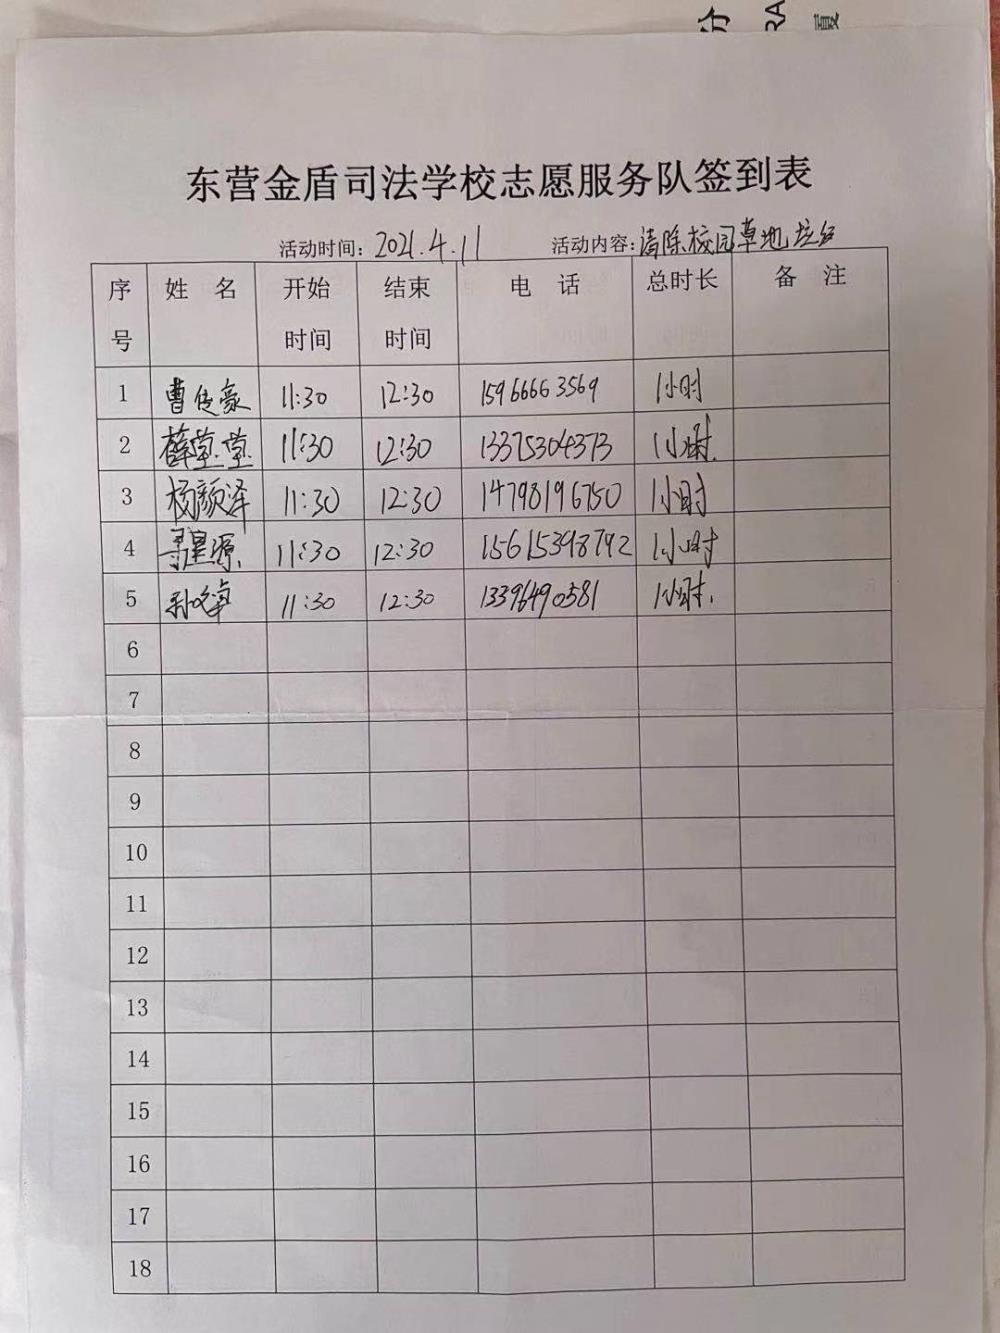 分
RA
夏
东营金盾司法学校志愿服务队签到表
活动时间: 2021.4.11 活动内容: 清除校园草地垃圾
序号 姓 名 开始时间 结束时间 电 话 总时长 备 注
1 曹传豪 11:30 12:30 15966663569 1小时
2 薛莹莹 11:30 12:30 13375304373 1小时.
3 杨颜泽 11:30 12:30 14798196750 1小时
4 寻星源 11:30 12:30 15615398792 1小时
5 11:30 12:30 13396490581 1小时.
6
7
8
9
10
11
12
13
14
15
16
17
18